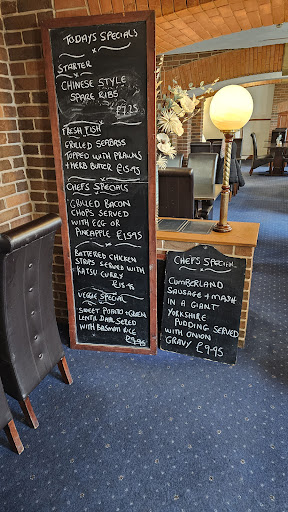 TODAYS SPECIALS
STARTER
CHINESE STYLE
SPARE RIBS
£7.25
FRESH FISH
GRILLED SEABASS
TOPPED WITH PRAWNS
+ HERB BUTTER £15.45
CHEF'S SPECIALS
GRILLED BACON
CHOPS SERVED
WITH EGG OR
PINEAPPLE £15.95
BATTERED CHICKEN
STRIPS SERVED WITH
KATSU CURRY
£15.95
VEGGIE SPECIAL
SWEET POTATO + GREEN
LENTIL DAHL SERVED
WITH BASMATI RICE
£9.95
CHEF'S SPECIAL
CUMBERLAND
SAUSAGE + MASH
IN A GIANT
YORKSHIRE
PUDDING SERVED
WITH ONION
GRAVY £9.95